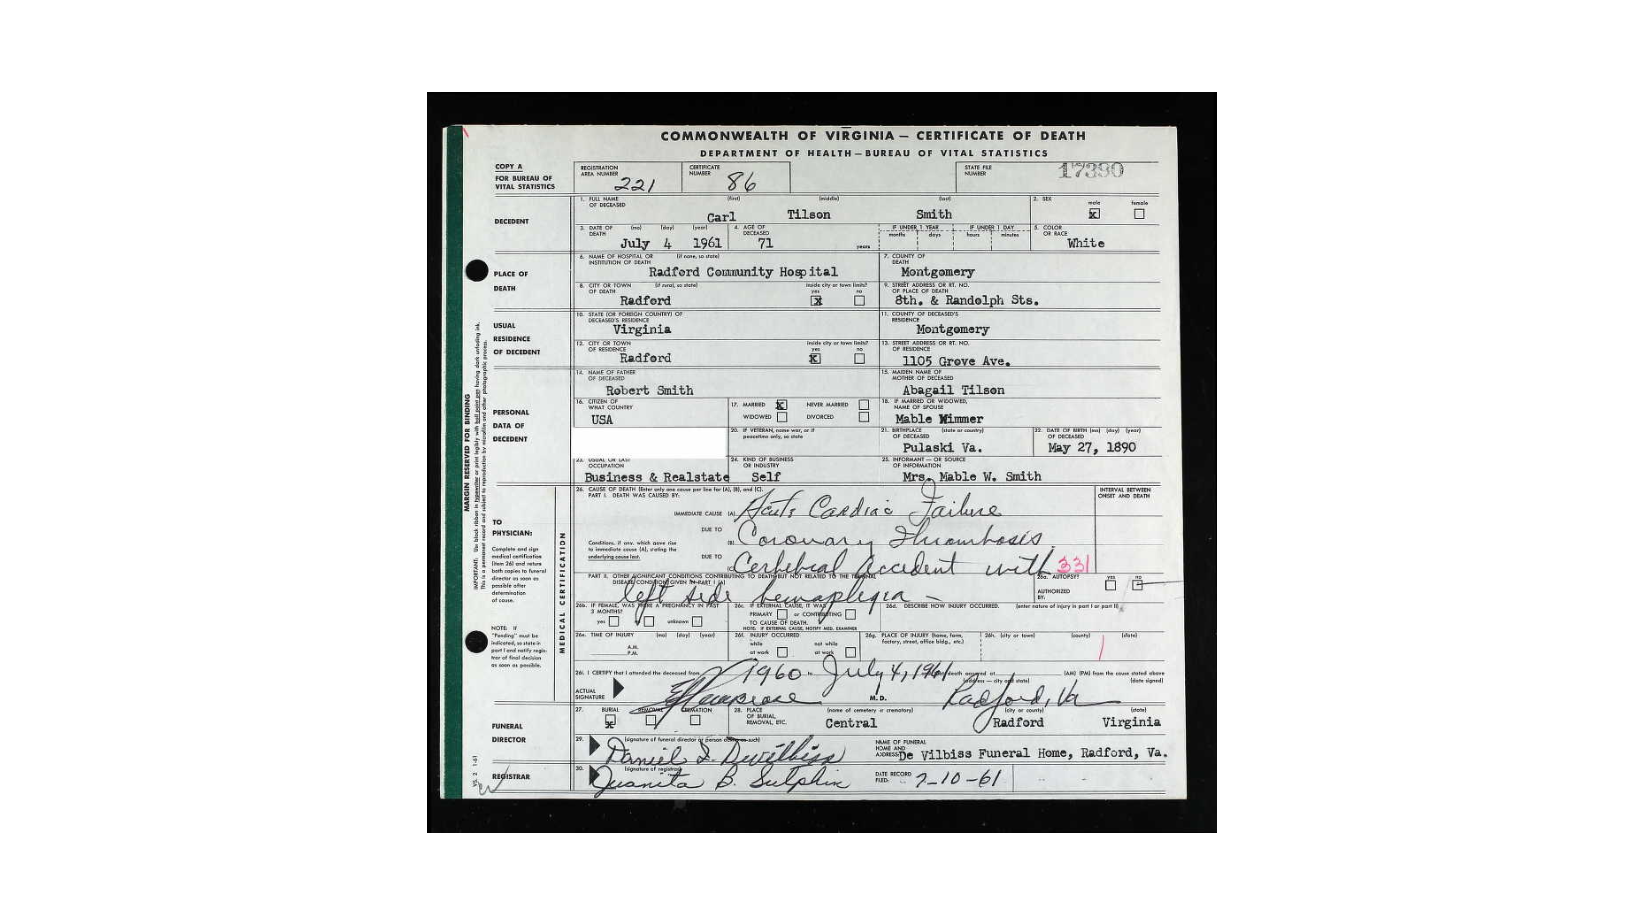 COMMONWEALTH OF VIRGINIA — CERTIFICATE OF DEATH
DEPARTMENT OF HEALTH — BUREAU OF VITAL STATISTICS
COPY A
FOR BUREAU OF
VITAL STATISTICS
REGISTRATION
AREA NUMBER 221
CERTIFICATE
NUMBER 86
STATE FILE
NUMBER
17390
DECEDENT
1. FULL NAME
OF DECEASED
(first) (middle) (last)
Carl Tilson Smith
2. SEX
male female
x
3. DATE OF
DEATH
(mo) (day) (year)
July 4 1961
4. AGE OF
DECEASED
71 years
IF UNDER 1 YEAR IF UNDER 1 DAY
months days hours minutes
5. COLOR
OR RACE
White
PLACE OF
DEATH
6. NAME OF HOSPITAL OR
INSTITUTION OF DEATH
(if none, so state)
Radford Community Hospital
7. COUNTY OF
DEATH
Montgomery
8. CITY OR TOWN
OF DEATH
(if rural, so state)
inside city or town limits?
yes no
Radford x
9. STREET ADDRESS OR RT. NO.
OF PLACE OF DEATH
8th. & Randolph Sts.
USUAL
RESIDENCE
OF DECEDENT
10. STATE (OR FOREIGN COUNTRY) OF
DECEASED'S RESIDENCE
Virginia
11. COUNTY OF DECEASED'S
RESIDENCE
Montgomery
12. CITY OR TOWN
OF RESIDENCE
inside city or town limits?
yes no
Radford x
13. STREET ADDRESS OR RT. NO.
OF RESIDENCE
1105 Grove Ave.
PERSONAL
DATA OF
DECEDENT
14. NAME OF FATHER
OF DECEASED
Robert Smith
15. MAIDEN NAME OF
MOTHER OF DECEASED
Abagail Tilson
16. CITIZEN OF
WHAT COUNTRY
USA
17. MARRIED x NEVER MARRIED
WIDOWED DIVORCED
18. IF MARRIED OR WIDOWED,
NAME OF SPOUSE
Mable Wimmer
20. IF VETERAN, name war, or if
peacetime only, so state
21. BIRTHPLACE
OF DECEASED
(state or country)
Pulaski Va.
22. DATE OF BIRTH (mo) (day) (year)
OF DECEASED
May 27, 1890
23. USUAL OR LAST
OCCUPATION
Business & Realstate
24. KIND OF BUSINESS
OR INDUSTRY
Self
25. INFORMANT — OR SOURCE
OF INFORMATION
Mrs. Mable W. Smith
MARGIN RESERVED FOR BINDING
MEDICAL CERTIFICATION
TO
PHYSICIAN:
Complete and sign
medical certification
(item 26) and return
both copies to funeral
director as soon as
possible after
determination
of cause.
NOTE: If
"Pending" must be
indicated, so state in
part I and notify regis-
trar of final decision
as soon as possible.
26. CAUSE OF DEATH (Enter only one cause per line for (A), (B), and (C).
PART I. DEATH WAS CAUSED BY:
INTERVAL BETWEEN
ONSET AND DEATH
IMMEDIATE CAUSE (A) Acute Cardiac Failure
DUE TO
(B) Coronary Thrombosis
Conditions, if any, which gave rise
to immediate cause (A), stating the
underlying cause last.
DUE TO
(C) Cerhebral Accident with 331
PART II. OTHER SIGNIFICANT CONDITIONS CONTRIBUTING TO DEATH BUT NOT RELATED TO THE TERMINAL
DISEASE CONDITION GIVEN IN PART I (A)
left side hemaplegia –
26a. AUTOPSY? yes no
AUTHORIZED
BY:
26b. IF FEMALE, WAS THERE A PREGNANCY IN PAST
3 MONTHS?
yes no unknown
26c. IF EXTERNAL CAUSE, IT WAS
PRIMARY or CONTRIBUTING
TO CAUSE OF DEATH.
NOTE: IF EXTERNAL CAUSE, NOTIFY MED. EXAMINER
26d. DESCRIBE HOW INJURY OCCURRED. (enter nature of injury in part I or part II)
26e. TIME OF INJURY (mo) (day) (year)
A.M.
P.M.
26f. INJURY OCCURRED
while not while
at work at work
26g. PLACE OF INJURY (home, farm,
factory, street, office bldg., etc.)
26h. (city or town) (county) (state)
26i. I CERTIFY that I attended the deceased from 1960 to July 4, 1961 death occurred at (AM) (PM) from the cause stated above
ACTUAL
SIGNATURE
M.D.
(address — city and state) (date signed)
Radford, Va
FUNERAL
DIRECTOR
27. BURIAL REMOVAL CREMATION
x
28. PLACE
OF BURIAL,
REMOVAL, ETC.
(name of cemetery or crematory) (city or county) (state)
Central Radford Virginia
29. (signature of funeral director or person acting as such)
Daniel L. Devilbiss
NAME OF FUNERAL
HOME AND
ADDRESS De Vilbiss Funeral Home, Radford, Va.
REGISTRAR
30. (signature of registrar)
Juanita B. Sulphin
DATE RECORD
FILED: 7-10-61